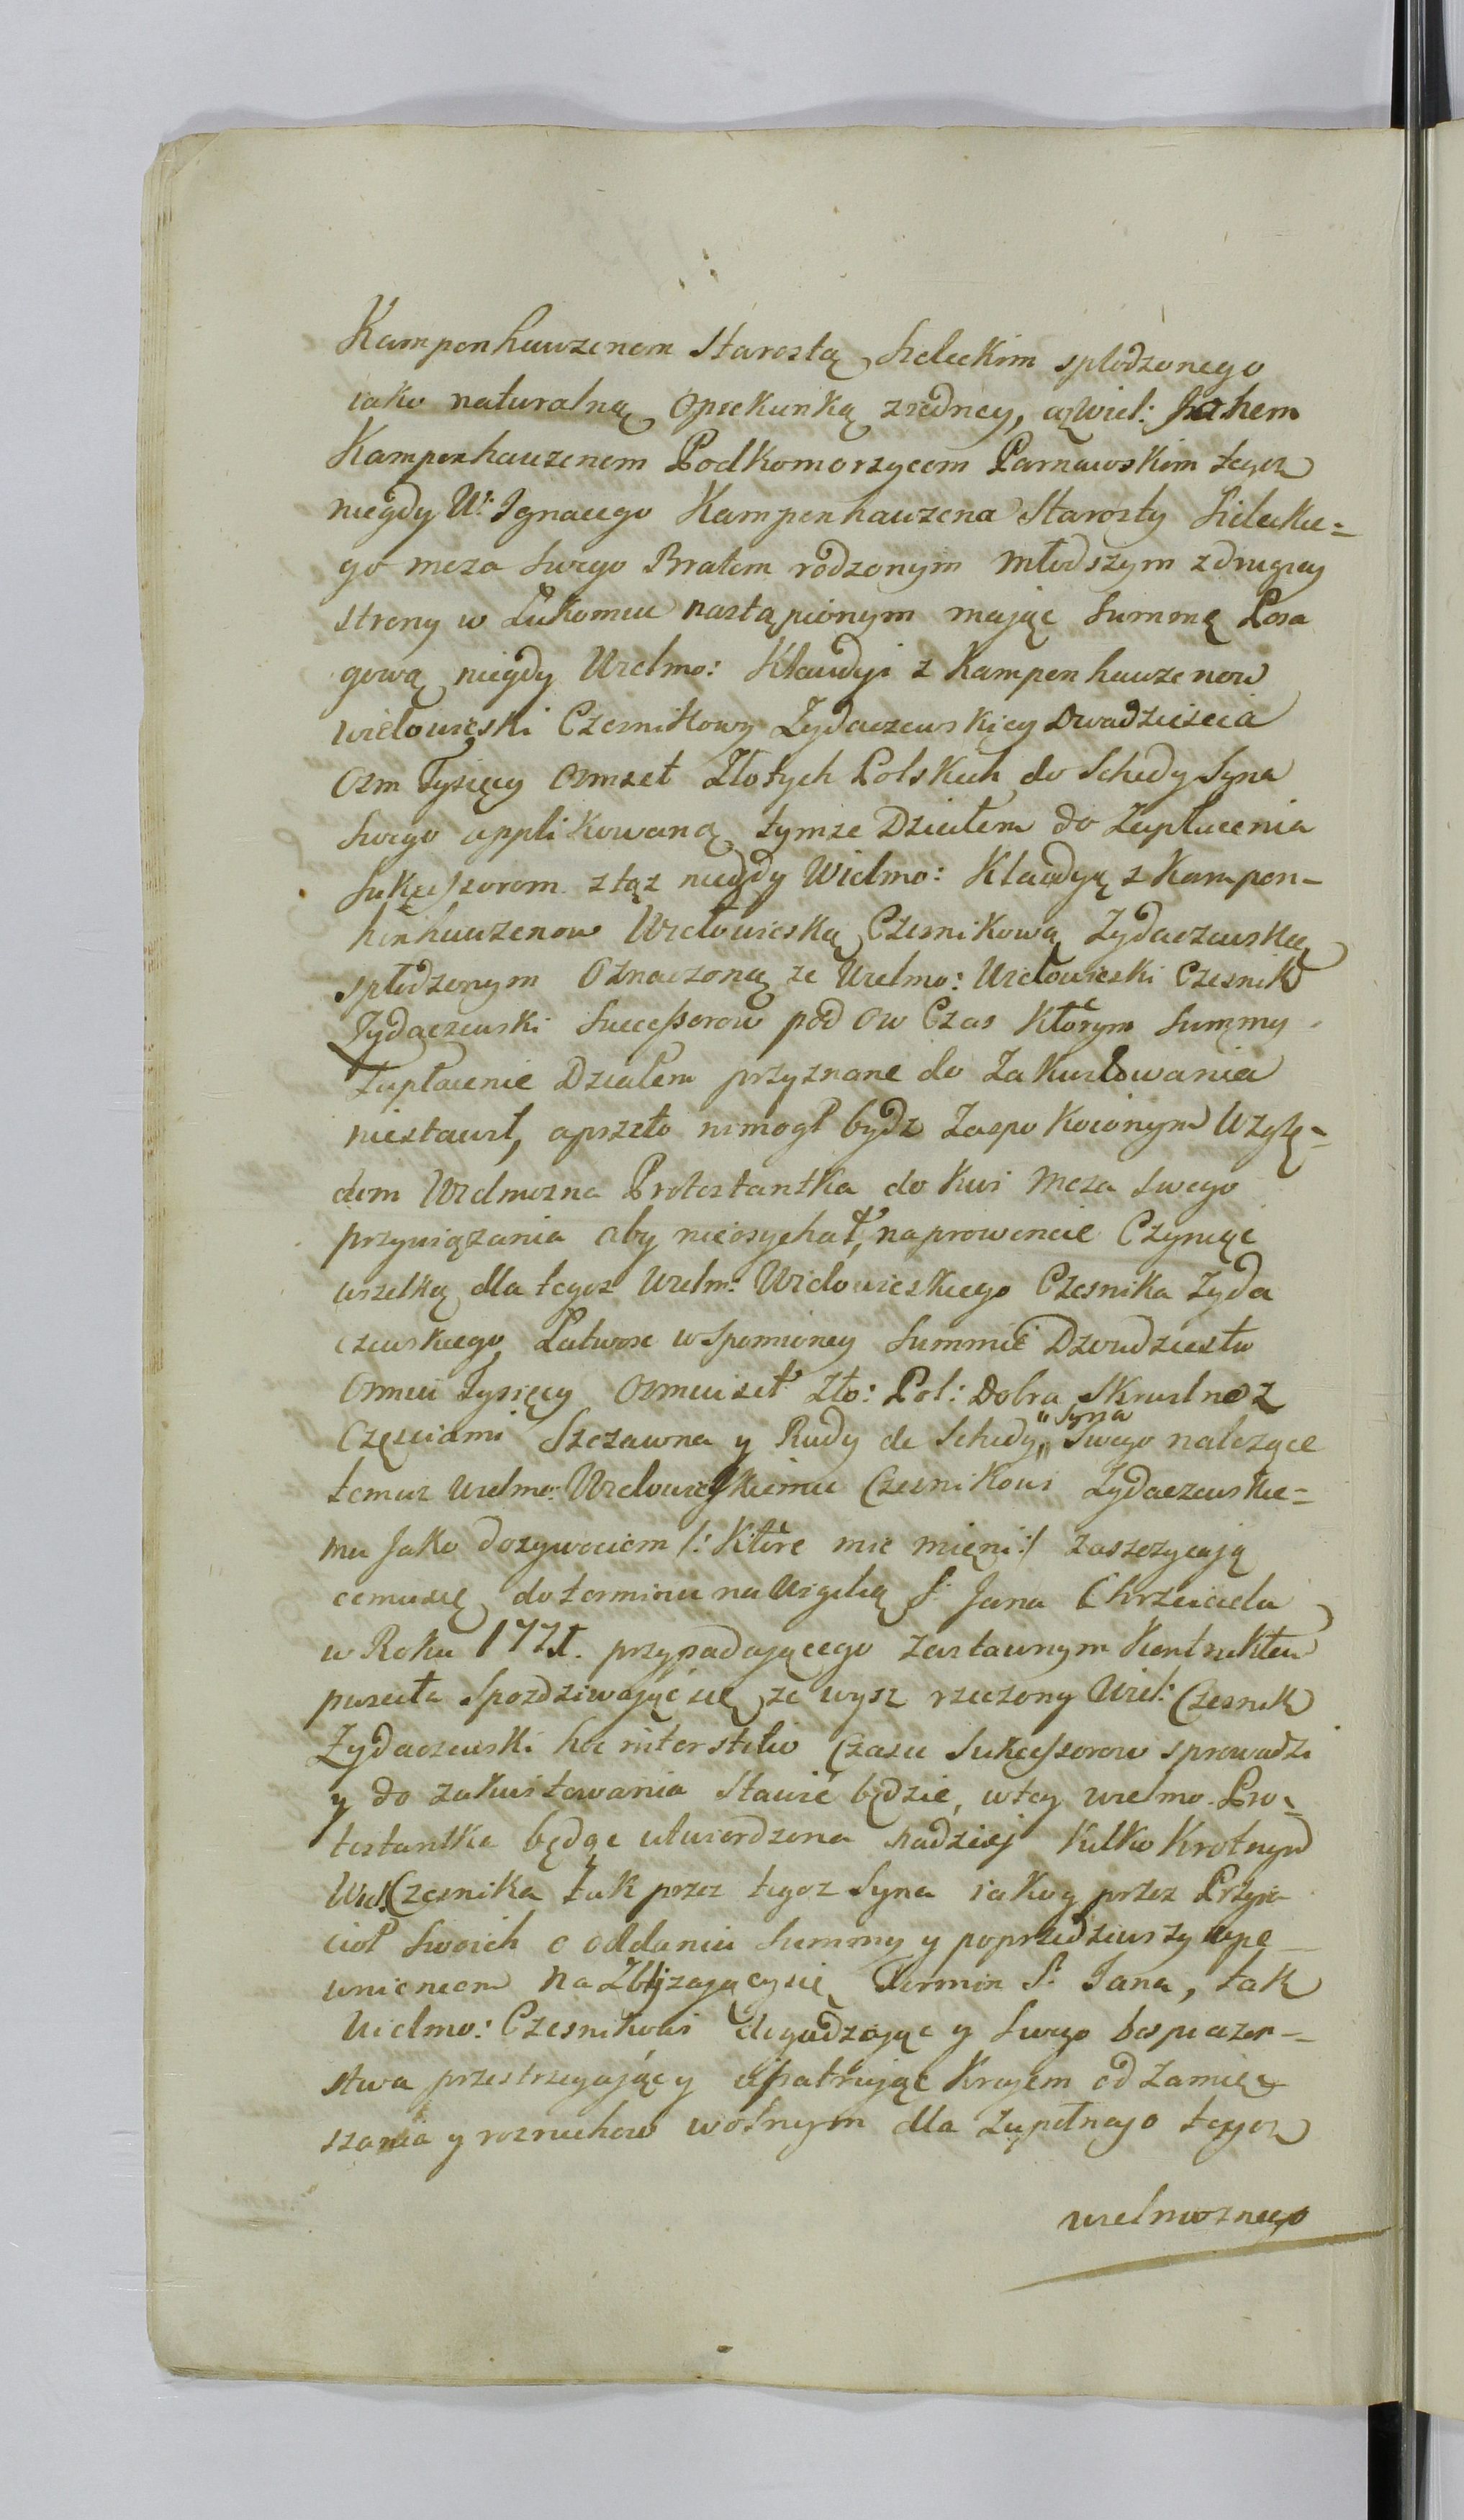 Kampenhauzenem Starostą Sieleckim spłodzonego
iako naturalną Opiekunką ziedney, a Wiel:
Kampenhauzenem Podkomorzycem Parnawskim tegoz
niegdy W: Ignacego Kampenhauzena Starosty Sieleckie=
go meza swego Bratem rodzonym młodszym z drugiey
strony w Łukomiu nastąpionym mając Summę Posa
gową niegdy Wielmo: Klaudyi z Kampenhauzenow
Wielowieski Czesnikowy Zydaczewskiey Dwadziescia
Osm Tysięcy Osmset Złotych Polskich do Schedy Syna
Swego applikowaną tymze Działem do Zapłacenia
Sukcessorom z tąz niegdy Wielmo: Klaudyą z Kampen-
hinhauzenow Wielowieską Czesnikową Zydaczewską
spłodzonym Oznaczoną ze Wielmo: Wielowieski Czesnik
Zydaczewski Successorow pod ow Czas Którym Summy
Zapłacenie Działem przyznane do Zakwitowania
niestawił, aprzeto nimogł bydz Zaspokoionym Wzglę=
dem Wielmozna Protestantka do Krwi Meza Swego
przywiązania aby nieosychał, naprowencie Czyniąc
wszelką dla tegoz Wielm: Wielowieskiego Czesnika Zyda
czewskiego Łatwosc wspomioney Summie Dwudziestu
Osmiu Tysięcy Osmiuset Zło: Pol: Dobra Skrudne z
Częsciami Szczawna y Rudy do Schedy " Syna " Swego nalezące
temuz Wielmo: Wielowieyskiemu Czesnikowi Zydaczewskie=
mu Jako dozywociem /: Które mie mięni :/ zaszczycają
cemusię do terminu na Wigilią S: Jana Chrzciciela
w Roku 1771. przypadającego Zastawnym Kontraktem
pusciła Spozdziwając się ze wysz rzeczony Wiel: Czesnik
Zydaczewski hoc interstitio Czasu Sukcessorow sprowadzi
y do zakwitowania Stawić będzie, w tey wielmo. Pro=
testantka będąc utwierdzona nadzieij Kilko Krotnym
Wiel: Czesnika tak przez tegoz Syna iako y przez Przyia
cioł Swoich o oddaniu Summy y poprzedziwszy upe
wnieniem na Zblizającysię Termin S: Jana, tak
Wielmo: Czesnikowi dogadzając y Swego bespieczen=
stwa przestrzegając y upatrując Krajem od Zamię
szania y rozruchow wolnym dla Zupełnego tegoz
wielmoznego